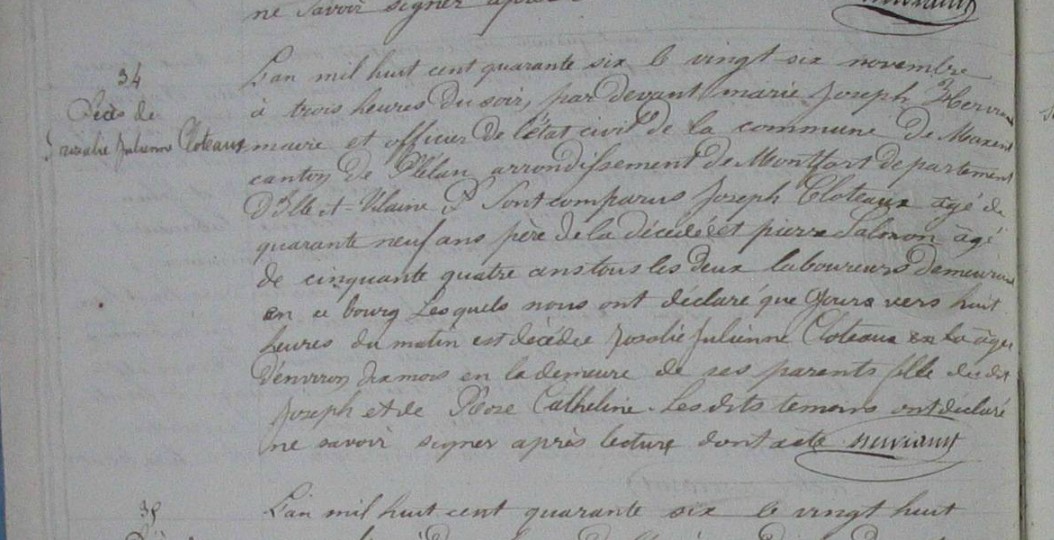 ne savoir signer après
34
Décès de
rosalie julienne Cloteaux
L'an mil huit cent quarante six le vingt six novembre
à trois heures du soir, par devant marie Joseph
maire et officier de l'état civil de la commune de Maxent
canton de Plélan arrondissement de Montfort departement
D'Ille et-Vilaine Sont comparus Joseph Cloteaux agé de
quarante neuf ans père de la décédée et pierre Salmon agé
de cinquante quatre ans tous les deux laboureurs demeurant
en ce bourg Lesquels nous ont déclaré que vers huit
heures du matin est décédée rosalie julienne Cloteaux agée
D'environ mois en la demeure de ses parents fille du dit
joseph et de Rose Catheline. Les dits temoins ont declaré
ne savoir signer après lecture dont acte
35
L'an mil huit cent quarante six le vingt huit